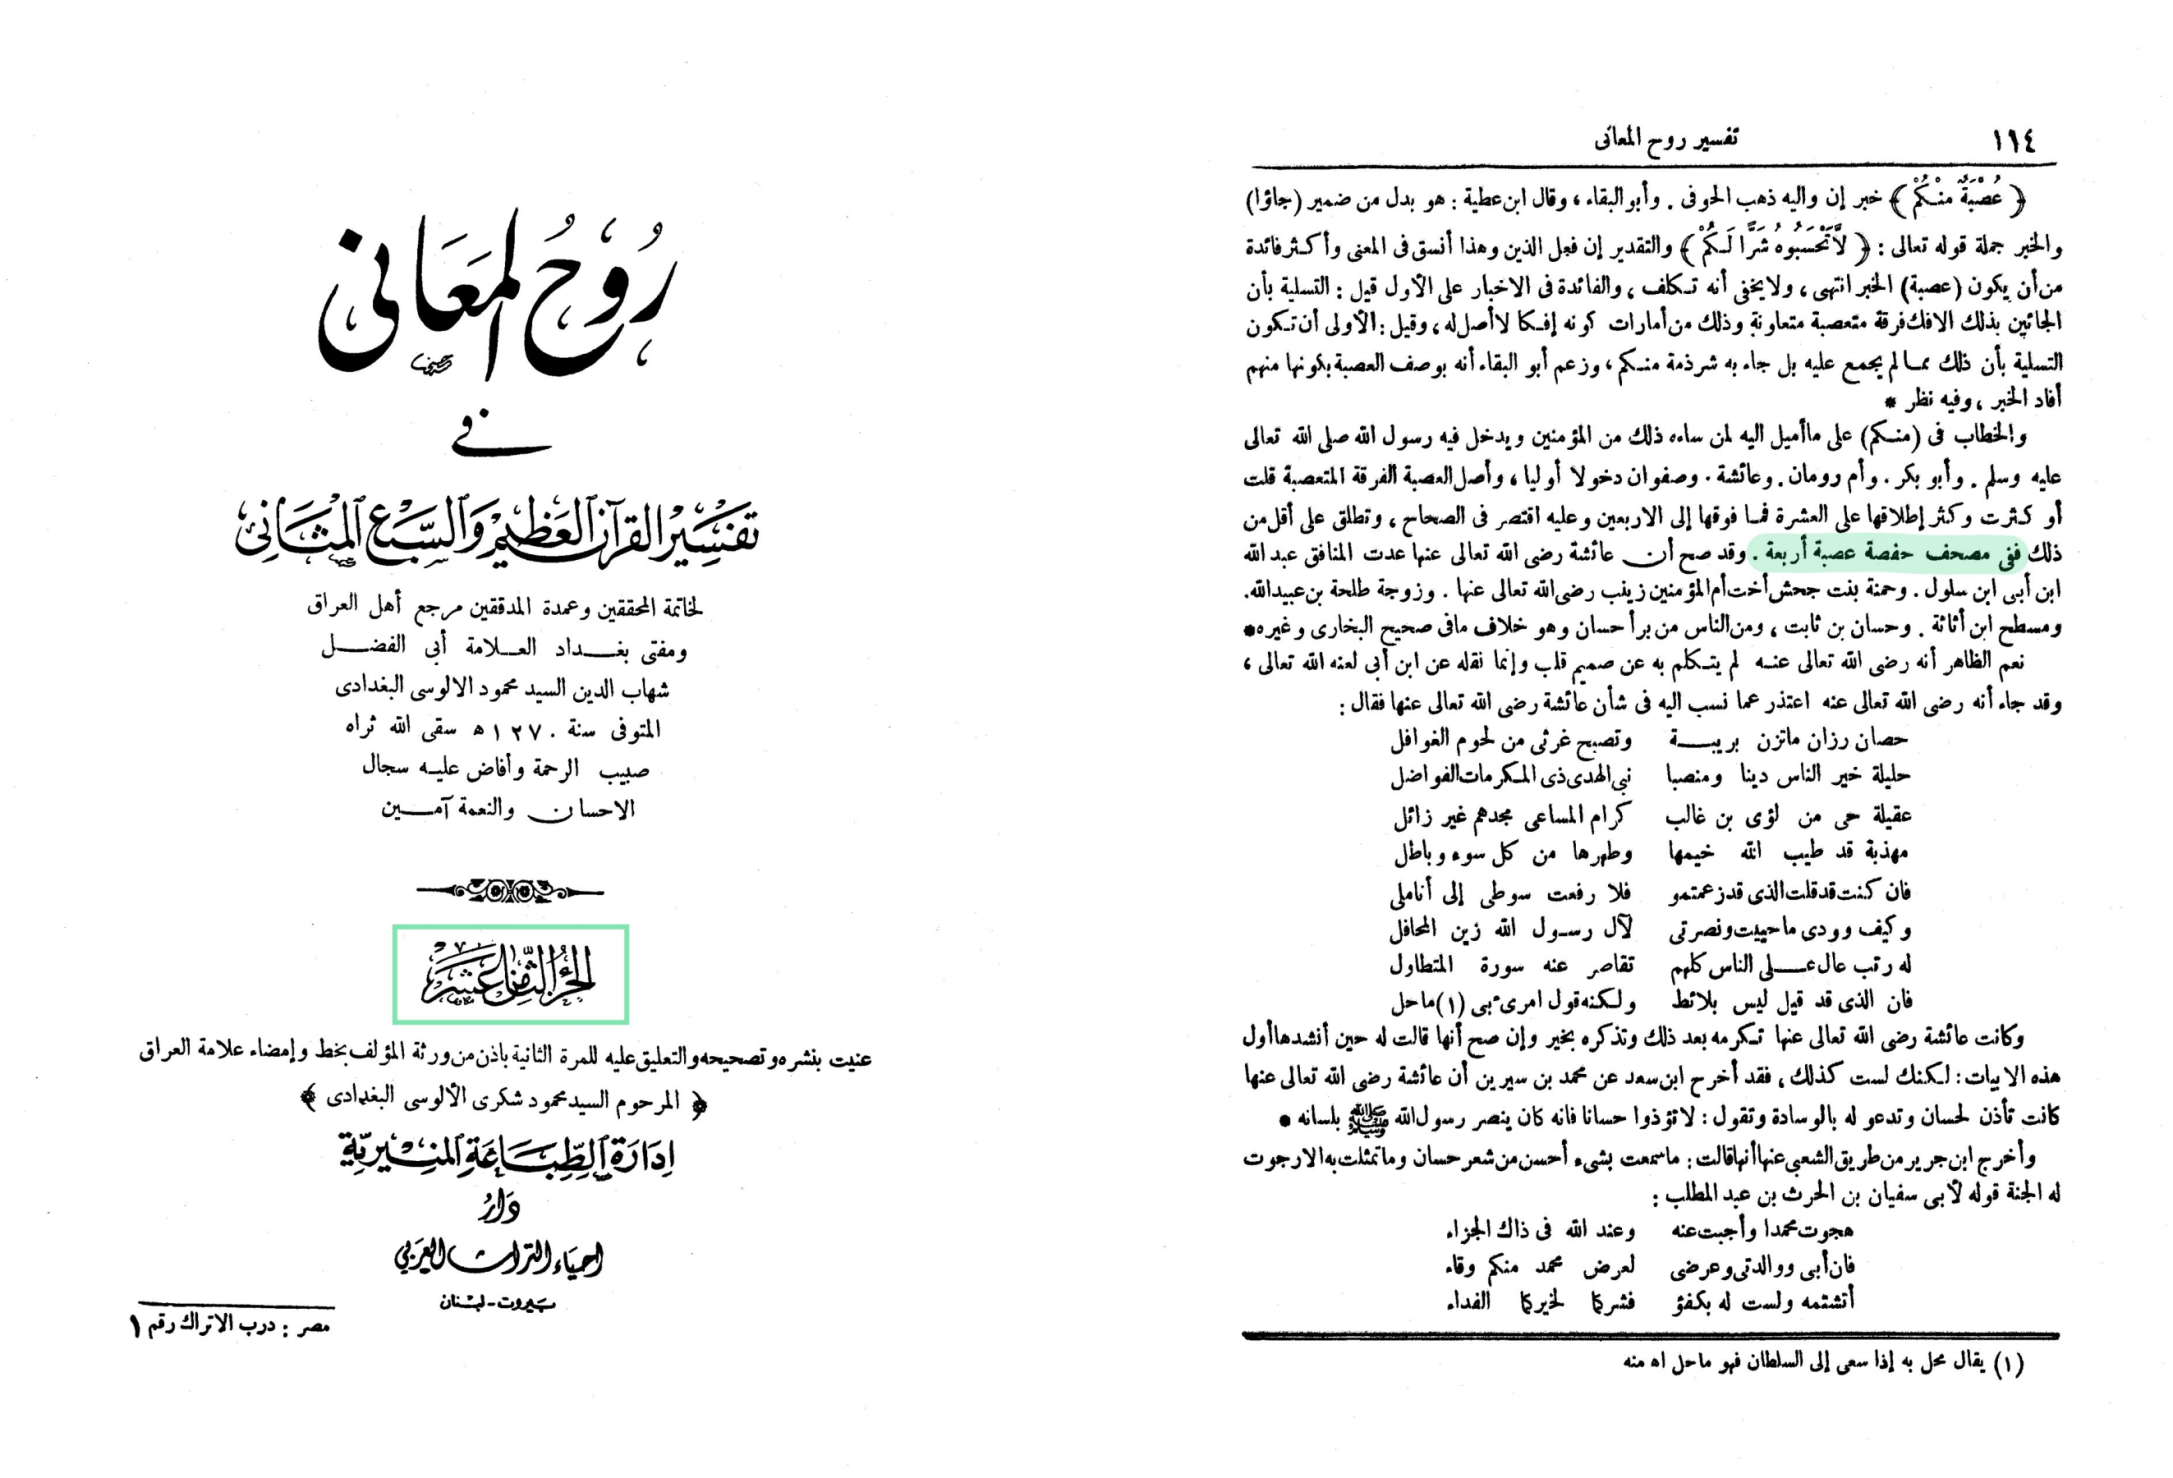 رُوحُ المَعَانى
فى
تَفْسِيرُ القُرآنِ العَظِيمِ وَالسَّبْعِ المَثَانِى
لخاتمة المحققين وعمدة المدققين مرجع أهل العراق
ومفتى بغداد العلامة أبى الفضل
شهاب الدين السيد محمود الالوسى البغدادى
المتوفى سنة ١٢٧٠ ه سقى الله ثراه
صبيب الرحمة وأفاض عليه سجال
الاحسان والنعمة آمين
الجزء الثامن عشر
عنيت بنشره وتصحيحه والتعليق عليه للمرة الثانية باذن من ورثة المؤلف بخط وإمضاء علامة العراق
﴿ المرحوم السيد محمود شكرى الألوسى البغدادى ﴾
إدَارَة الطِّبَاعَةِ المُنِيرِيَّةِ
دَارُ
احياء التراث العربي
بيروت - لبنان
مصر : درب الاتراك رقم ١
١١٤ تفسير روح المعانى
﴿ عُصْبَةٌ مِنْكُمْ ﴾ خبر إن واليه ذهب الحوفى . وأبو البقاء ، وقال ابن عطية : هو بدل من ضمير (جاؤا)
والخبر جملة قوله تعالى : ﴿ لَاتَحْسَبُوهُ شَرًّا لَكُمْ ﴾ والتقدير إن فعل الذين وهذا أنسق فى المعنى وأكثر فائدة
من أن يكون (عصبة) الخبر انتهى ، ولا يخفى أنه تكلف ، والفائدة فى الاخبار على الأول قيل : التسلية بأن
الجائين بذلك الافك فرقة متعصبة متعاونة وذلك من أمارات كونه إفكا لا أصل له ، وقيل : الأولى أن تكون
التسلية بأن ذلك مما لم يجمع عليه بل جاء به شرذمة منكم ، وزعم أبو البقاء أنه بوصف العصبة بكونها منهم
أفاد الخبر ، وفيه نظر *
والخطاب فى (منكم) على ماأميل اليه لمن ساءه ذلك من المؤمنين ويدخل فيه رسول الله صلى الله تعالى
عليه وسلم . وأبو بكر . وأم رومان . وعائشة . وصفوان دخولا أوليا ، وأصل العصبة الفرقة المتعصبة قلت
أو كثرت وكثر إطلاقها على العشرة فما فوقها إلى الاربعين وعليه اقتصر فى الصحاح ، وتطلق على أقل من
ذلك ففى مصحف حفصة عصبة أربعة . وقد صح أن عائشة رضى الله تعالى عنها عدت المنافق عبد الله
ابن أبى ابن سلول . وحمنة بنت جحش أخت أم المؤمنين زينب رضى الله تعالى عنها . وزوجة طلحة بن عبيدالله.
ومسطح ابن أثاثة . وحسان بن ثابت ، ومن الناس من برأ حسان وهو خلاف مافى صحيح البخارى وغيره *
نعم الظاهر أنه رضى الله تعالى عنه لم يتكلم به عن صميم قلب وإنما نقله عن ابن أبى لعنه الله تعالى ،
وقد جاء أنه رضى الله تعالى عنه اعتذر عما نسب اليه فى شأن عائشة رضى الله تعالى عنها فقال :
حصان رزان ماتزن بريبة وتصبح غرثى من لحوم الغوافل
حليلة خير الناس دينا ومنصبا نبى الهدى ذى المكرمات الفواضل
عقيلة حى من لؤى بن غالب كرام المساعى مجدهم غير زائل
مهذبة قد طيب الله خيمها وطهرها من كل سوء وباطل
فان كنت قد قلت الذى قد زعمتمو فلا رفعت سوطى إلى أناملى
وكيف وودى ماحييت ونصرتى لآل رسول الله زين المحافل
له رتب عال على الناس كلهم تقاصر عنه سورة المتطاول
فان الذى قد قيل ليس بلائط ولكنه قول امرىء بى (١) ماحل
وكانت عائشة رضى الله تعالى عنها تكرمه بعد ذلك وتذكره بخير وإن صح أنها قالت له حين أنشدها أول
هذه الابيات : لكنك لست كذلك ، فقد أخرج ابن سعد عن محمد بن سيرين أن عائشة رضى الله تعالى عنها
كانت تأذن لحسان وتدعو له بالوسادة وتقول : لاتؤذوا حسانا فانه كان ينصر رسول الله ﷺ بلسانه *
وأخرج ابن جرير من طريق الشعبى عنها أنها قالت : ماسمعت بشىء أحسن من شعر حسان وماتمثلت به الا رجوت
له الجنة قوله لأبى سفيان بن الحرث بن عبد المطلب :
هجوت محمدا وأجبت عنه وعند الله فى ذاك الجزاء
فان أبى ووالدتى وعرضى لعرض محمد منكم وقاء
أتشتمه ولست له بكفؤ فشركما لخيركما الفداء
(١) يقال محل به إذا سعى إلى السلطان فهو ماحل اه منه